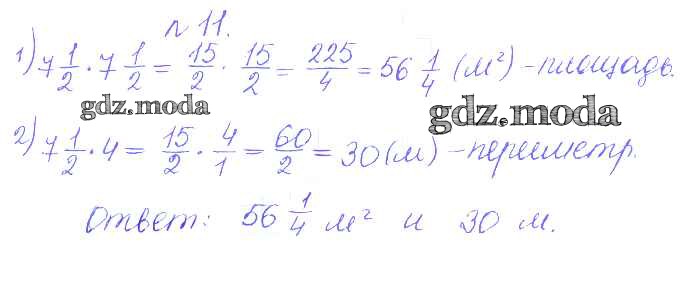 № 11.
1) 7 1/2 · 7 1/2 = 15/2 · 15/2 = 225/4 = 56 1/4 (м²) - площадь.
gdz.moda gdz.moda
2) 7 1/2 · 4 = 15/2 · 4/1 = 60/2 = 30 (м) - периметр.
Ответ: 56 1/4 м² и 30 м.